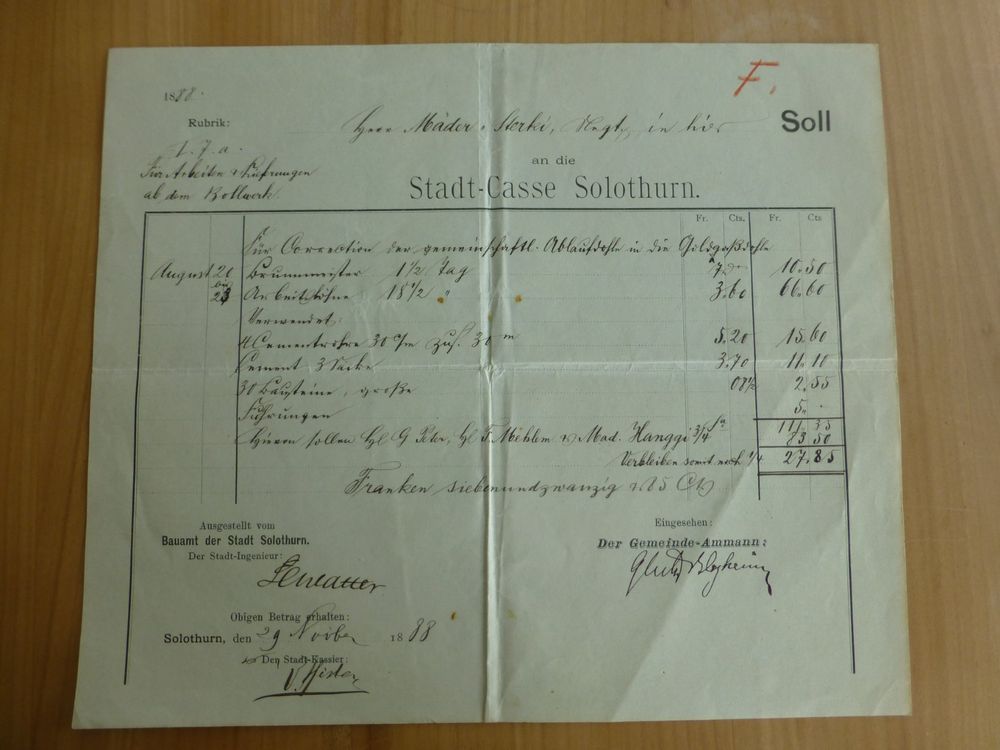 F.
1888.
Rubrik:
Herr Mäder-Sterki, Negt, in hier
Soll
I. 7. a.
Für Arbeiten &
ab dem Bollwerk.
an die
Stadt-Casse Solothurn.
Fr. Cts. Fr. Cts
Für Correction der gemeinschaftl. Ablaufdohle in die Goldgaßdohle
August 20 Brunnmeister 1 1/2 Tag 7.- 10.50
bis 23 Arbeitslöhne 18 1/2 " 3.60 66.60
Verwendet:
Cementrohre 30 c/m 5.20 15.60
Cement 3 Säcke 3.70 11.10
30 Bausteine, große 08 1/2 2.55
Fuhrungen 5.-
Hievon sollen G. Peter, F. Mehlem & Mad. Hänggi 3/4 111.35
83.50
Verbleiben somit noch 1/4 27.85
Franken siebenundzwanzig & 85 Cts
Ausgestellt vom
Bauamt der Stadt Solothurn.
Der Stadt-Ingenieur:
Eingesehen:
Der Gemeinde-Ammann:
Obigen Betrag erhalten:
Solothurn, den 29 Novber 1888
Der Stadt-Kassier: